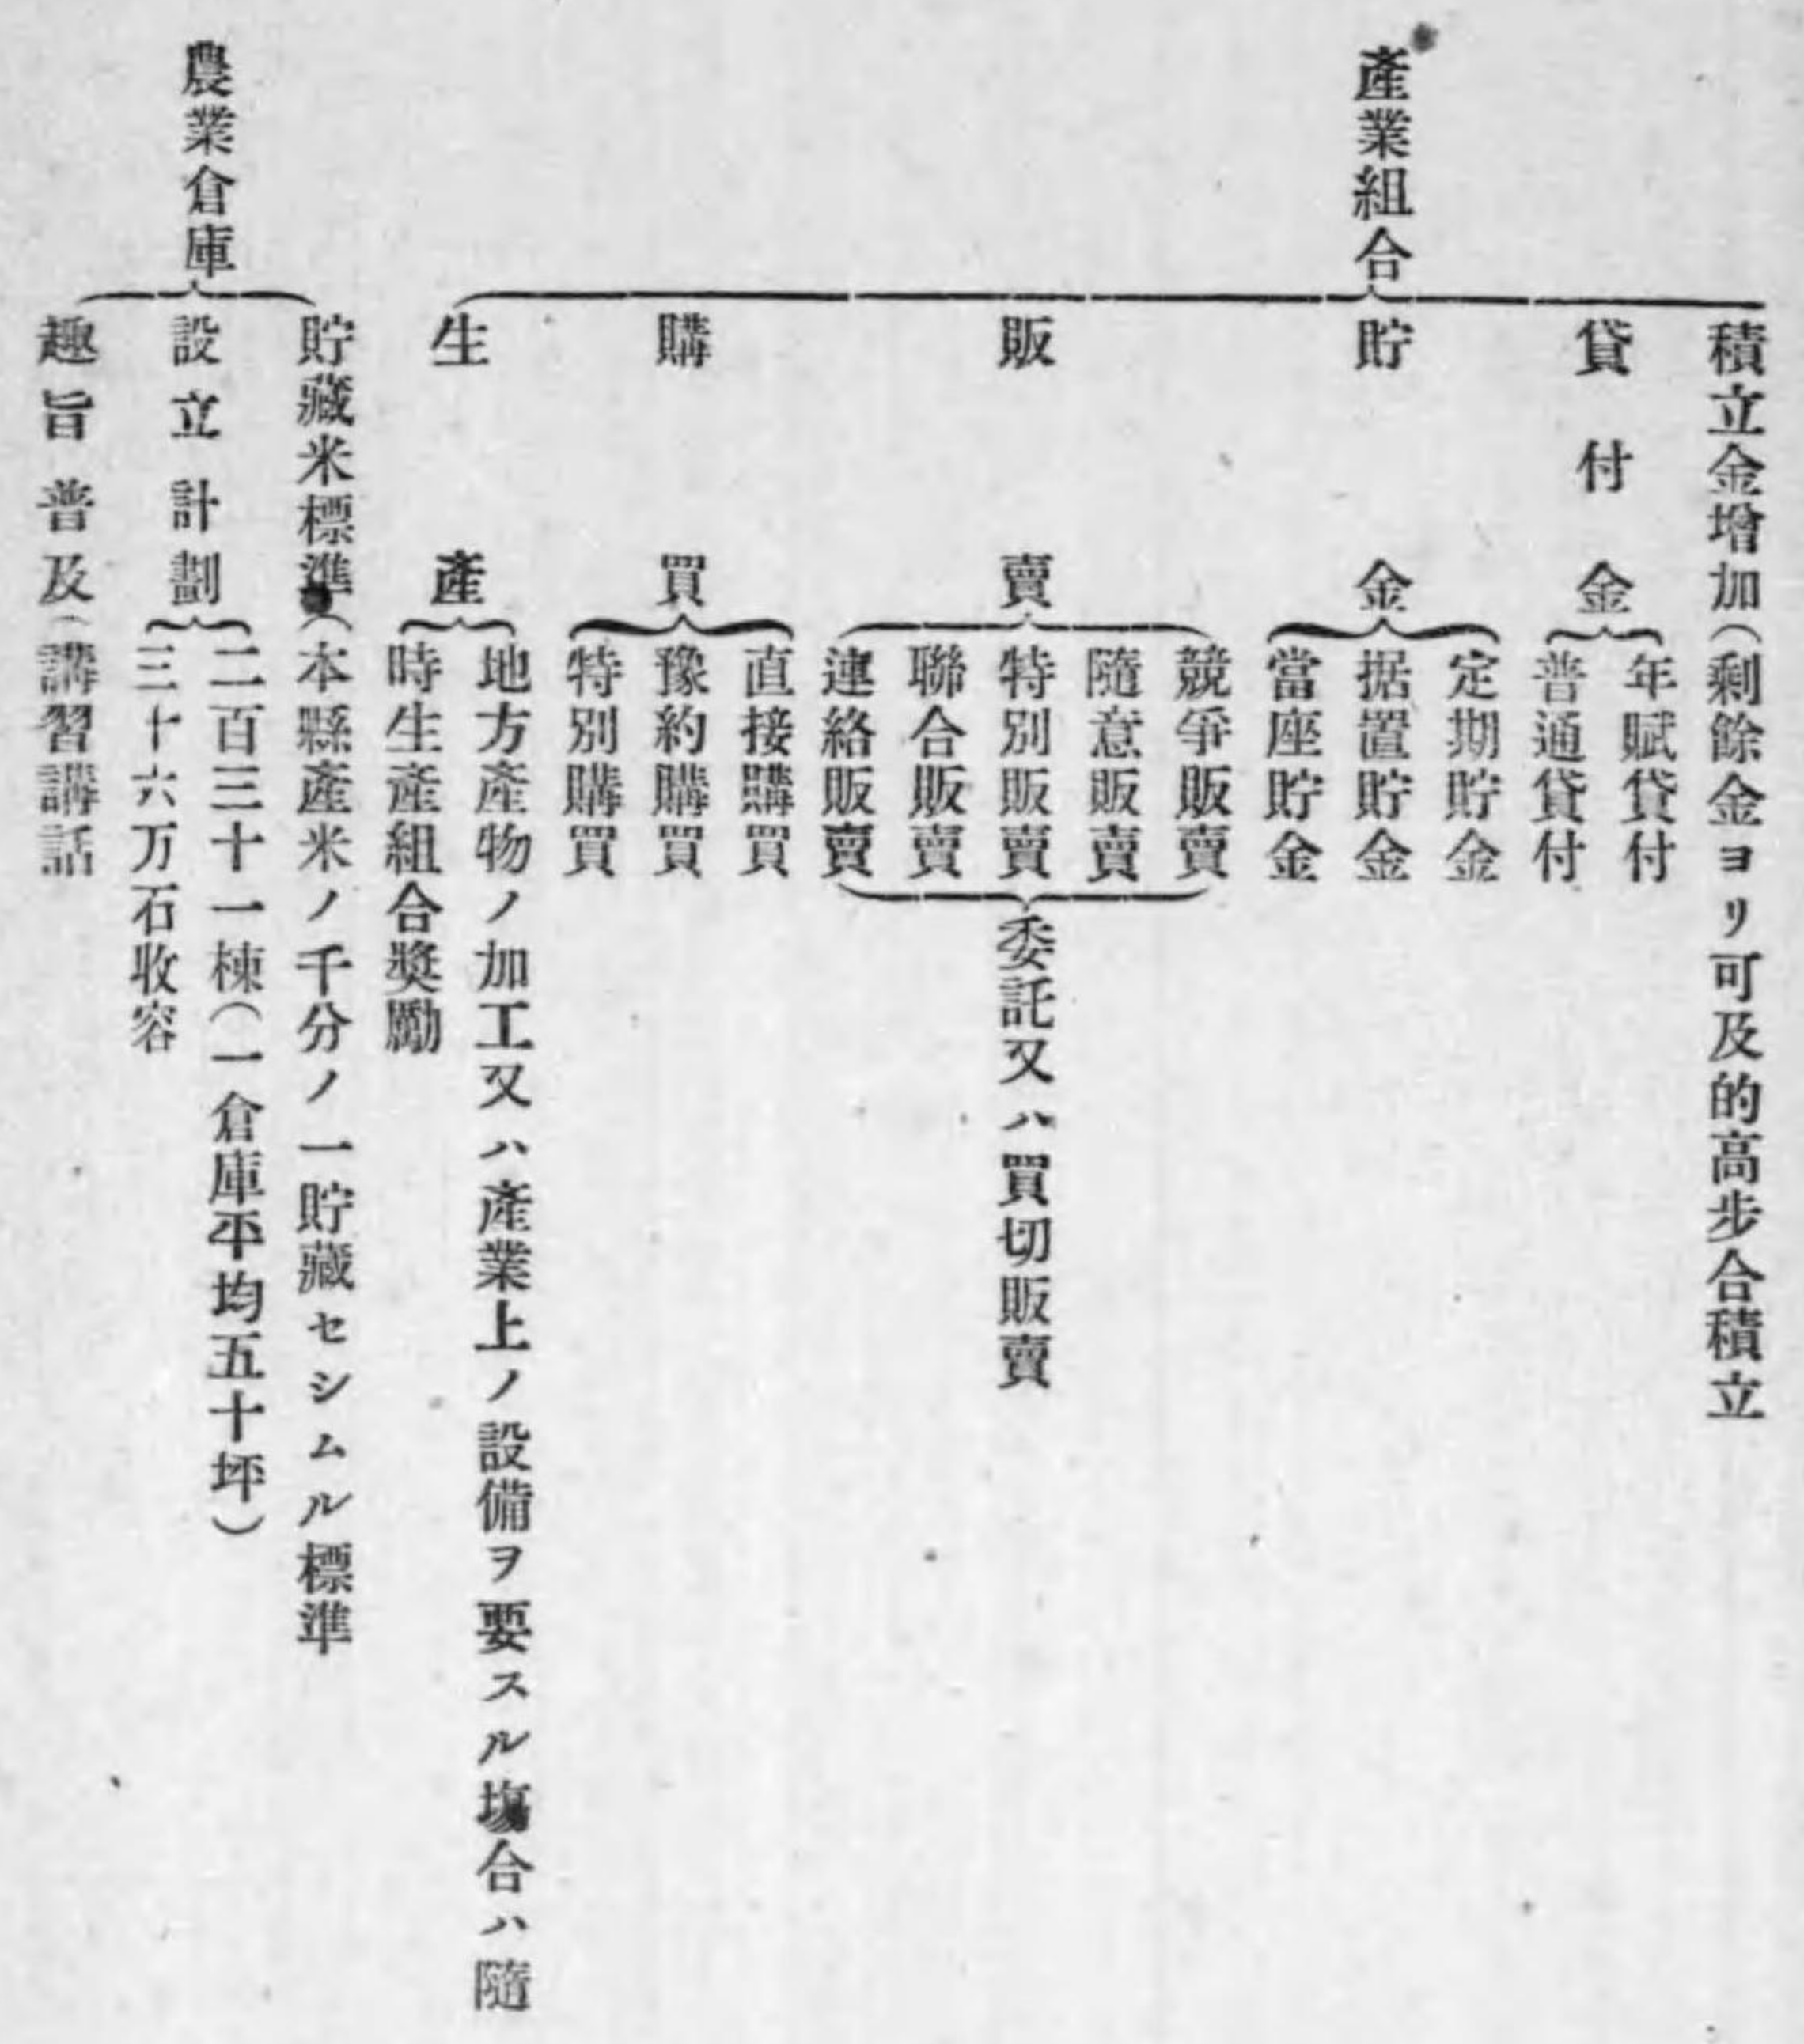 產業組合
積立金增加(剩餘金ヨリ可及的高步合積立
貸付金
年賦貸付
普通貸付
貯金
定期貯金
据置貯金
當座貯金
販賣
競爭販賣
隨意販賣
特別販賣
聯合販賣
連絡販賣
委託又ハ買切販賣
購買
直接購買
豫約購買
特別購買
生產
地方產物ノ加工又ハ產業上ノ設備ヲ要スル塲合ハ隨
時生產組合獎勵
農業倉庫
貯藏米標準(本縣產米ノ千分ノ一貯藏セシムル標準
設立計劃
二百三十一棟(一倉庫平均五十坪)
三十六万石收容
趣旨普及(講習講話